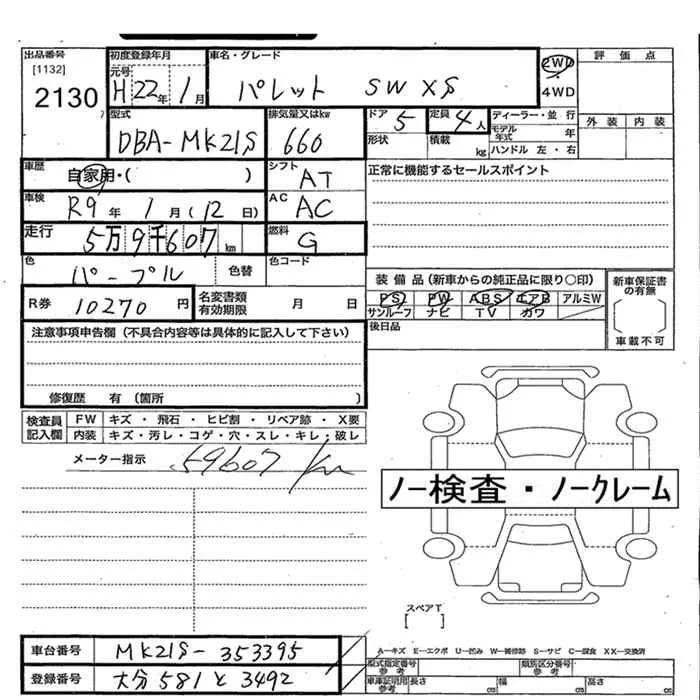 出品番号 初度登録年月 車名・グレード 評価点
[1132] 元号 2WD
2130 H 22年 1月 パレット SW XS 4WD
型式 排気量又はkw ドア 定員 ディーラー・並行 外装 内装
DBA-MK21S 660 5 4人 モデル年式 年
形状 積載 kg ハンドル 左・右
車歴 自家用・( ) シフト AT 正常に機能するセールスポイント
車検 R9年 1月 (12日) AC AC
走行 5万9千607km 燃料 G
色 パープル 色替 色コード
装備品(新車からの純正品に限り○印) 新車保証書の有無
R券 10270円 名変書類有効期限 月 日 PS PW ABS エアB アルミW
サンルーフ ナビ TV カワ
注意事項申告欄(不具合内容等は具体的に記入して下さい) 後日品 車載不可
修復歴 有(箇所 )
検査員記入欄 FW キズ・飛石・ヒビ割・リペア跡・X要
内装 キズ・汚レ・コゲ・穴・スレ・キレ・破レ
メーター指示 59607km
ノー検査・ノークレーム
スペアT
車台番号 MK21S-353395 A―キズ E―エクボ U―凹み W―補修跡 S―サビ C―腐食 XX―交換済
型式指定番号 参考 類別区分番号 参考
登録番号 大分 581 と 3492 車庫証明用参考 長さ cm 幅 cm 高さ cm